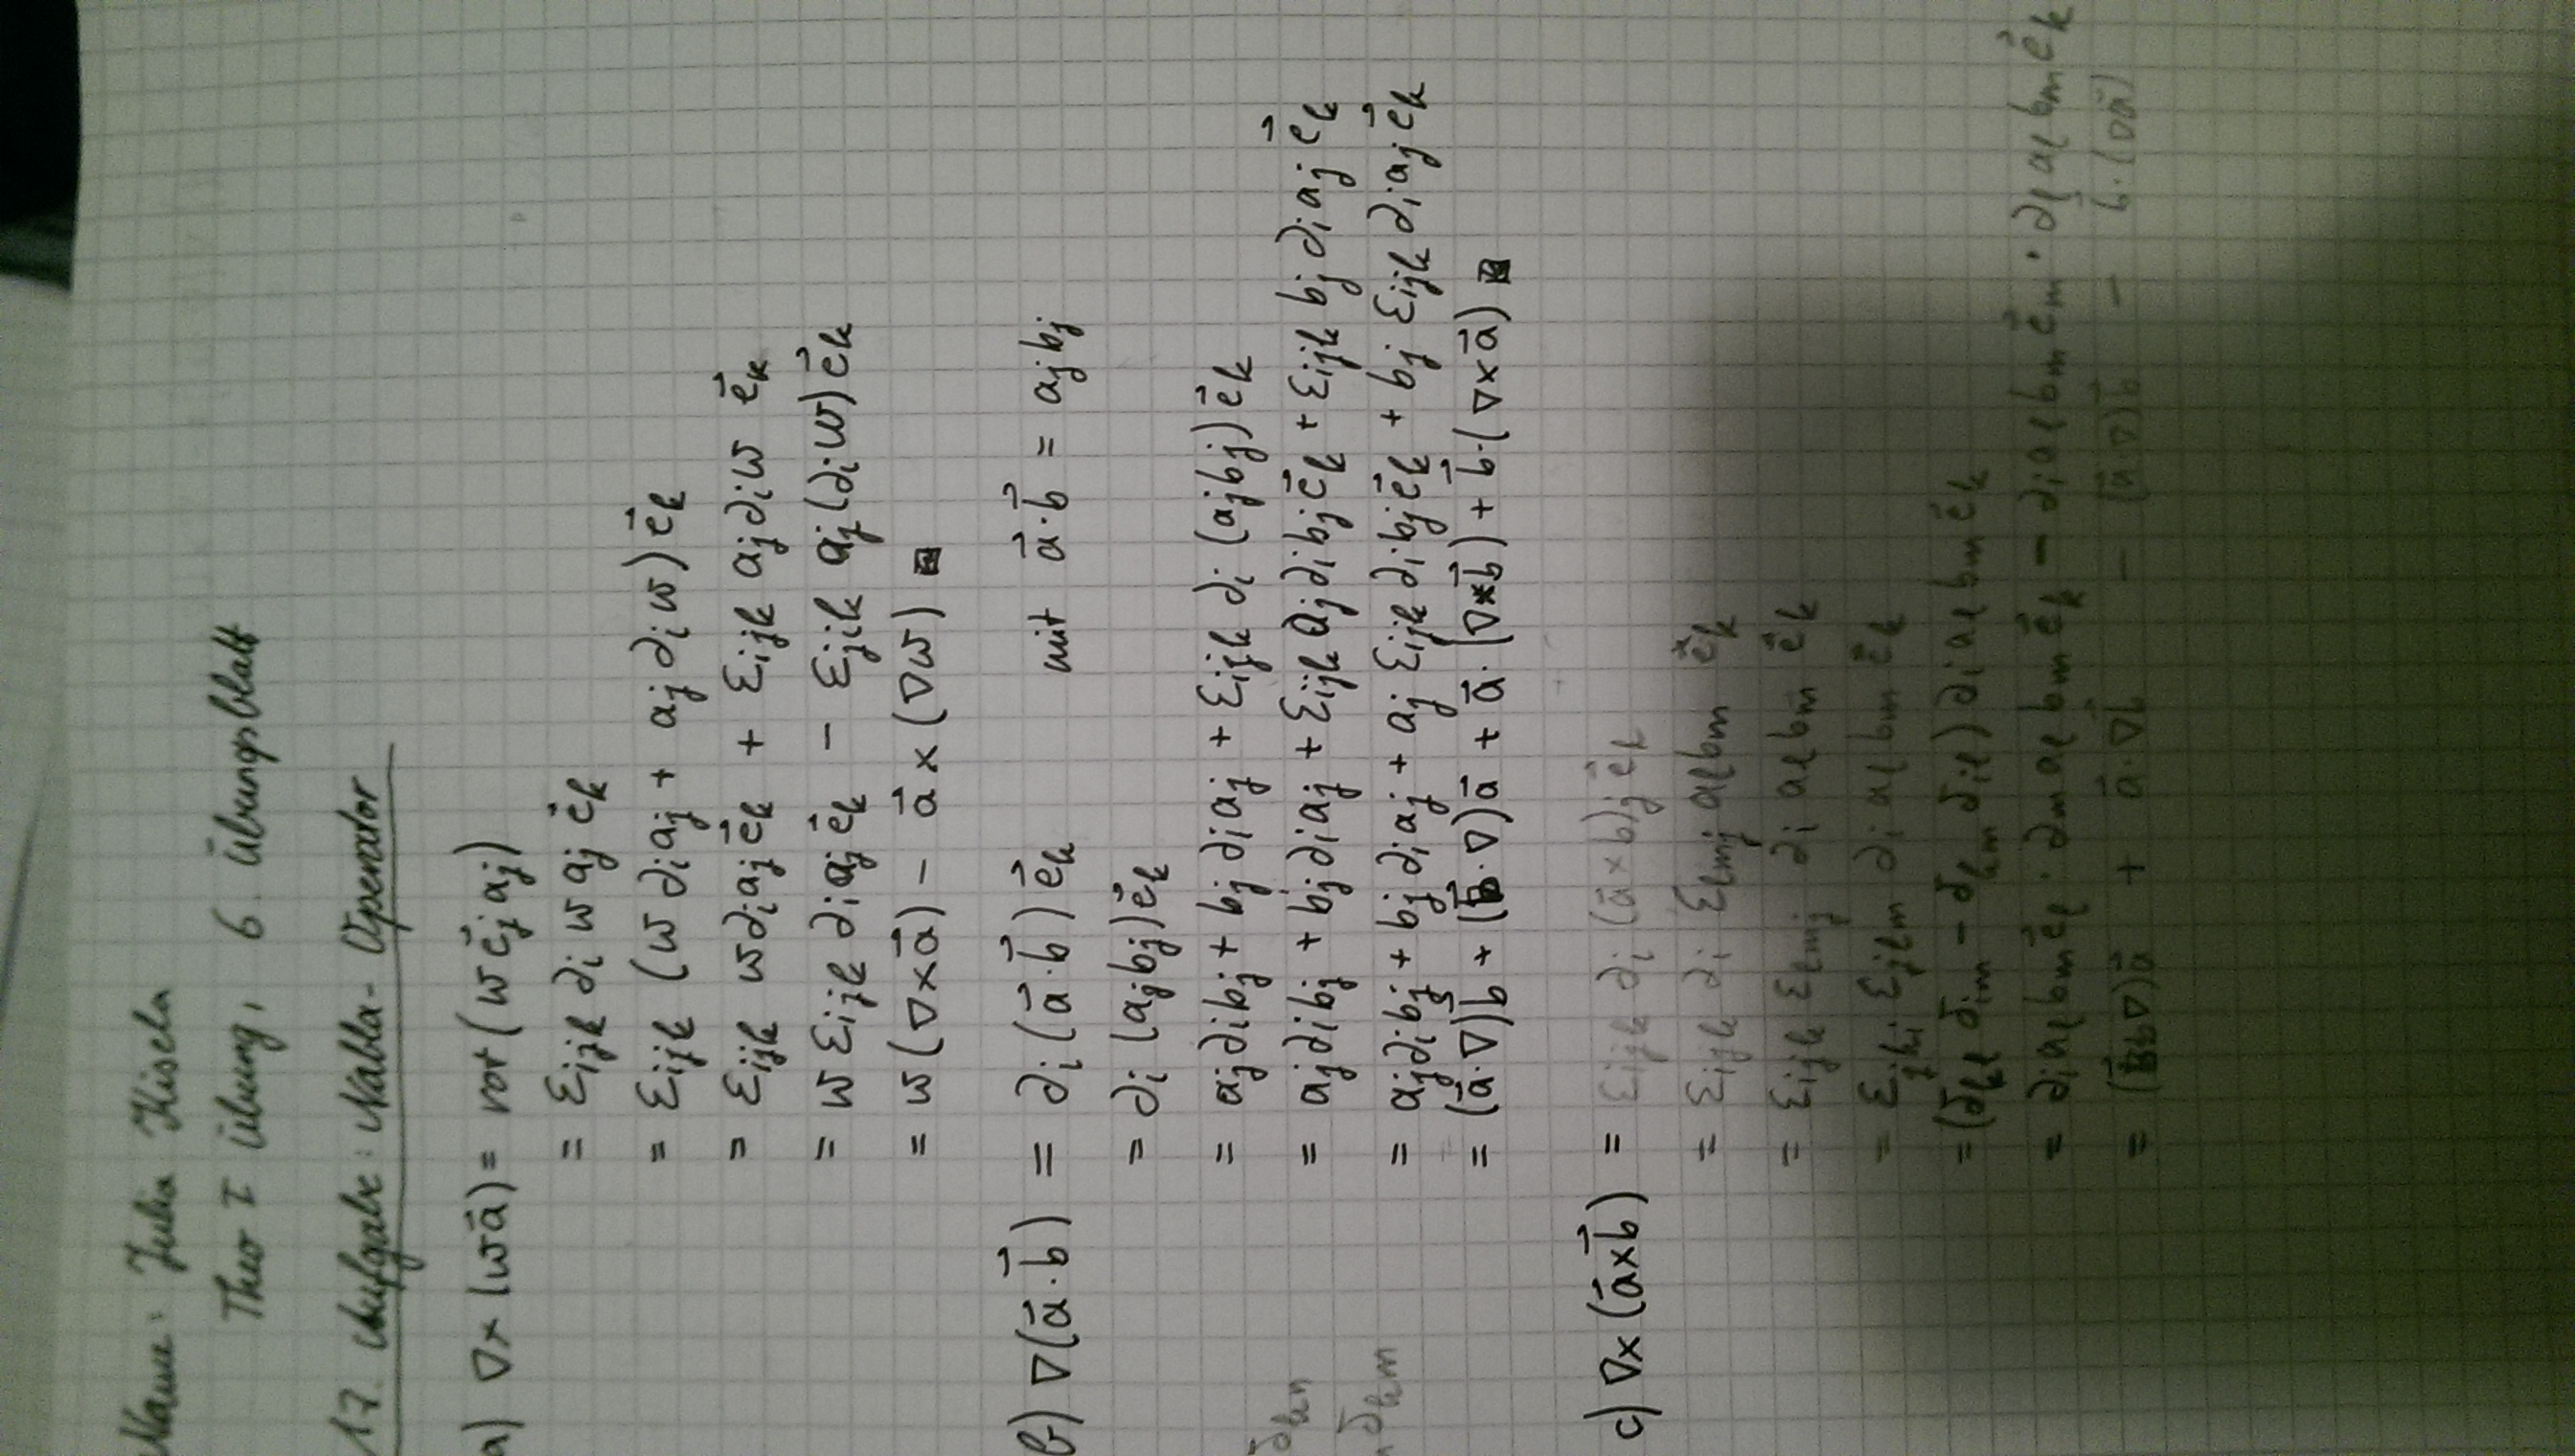 Name: Julia Kisela
Theo I Übung, 6. Übungsblatt
17. Aufgabe: Nabla-Operator
a) ∇×(wa⃗) = rot(we⃗ⱼaⱼ)
= εᵢⱼₖ ∂ᵢ w aⱼ e⃗ₖ
= εᵢⱼₖ (w ∂ᵢ aⱼ + aⱼ ∂ᵢ w) e⃗ₖ
= εᵢⱼₖ w∂ᵢaⱼe⃗ₖ + εᵢⱼₖ aⱼ∂ᵢw e⃗ₖ
= w εᵢⱼₖ ∂ᵢaⱼe⃗ₖ − εⱼᵢₖ aⱼ(∂ᵢw)e⃗ₖ
= w(∇×a⃗) − a⃗×(∇w) ◼
b) ∇(a⃗·b⃗) = ∂ᵢ(a⃗·b⃗)e⃗ₖ mit a⃗·b⃗ = aⱼbⱼ
= ∂ᵢ(aⱼbⱼ)e⃗ₖ
= aⱼ∂ᵢbⱼ + bⱼ∂ᵢaⱼ + εᵢⱼₖ ∂ᵢ(aⱼbⱼ)e⃗ₖ
= aⱼ∂ᵢbⱼ + bⱼ∂ᵢaⱼ + εᵢⱼₖaⱼ∂ᵢbⱼe⃗ₖ + εᵢⱼₖ bⱼ∂ᵢaⱼe⃗ₖ
= aⱼ∂ᵢbⱼ + bⱼ∂ᵢaⱼ + aⱼ εᵢⱼₖ∂ᵢbⱼe⃗ₖ + bⱼ εᵢⱼₖ∂ᵢaⱼe⃗ₖ
= (a⃗·∇)b⃗ + (b⃗·∇)a⃗ + a⃗·(∇×b⃗) + b⃗·(∇×a⃗) ◼
c) ∇×(a⃗×b⃗) = εᵢⱼₖ ∂ᵢ(a⃗×b⃗)ⱼe⃗ₖ
= εᵢⱼₖ ∂ᵢ εₗₘⱼ aₗbₘ e⃗ₖ
= εᵢⱼₖ εₗₘⱼ ∂ᵢ aₗbₘ e⃗ₖ
= εⱼₖᵢ εⱼₗₘ ∂ᵢ aₗbₘe⃗ₖ
= (δₖₗ δᵢₘ − δₖₘ δᵢₗ)∂ᵢaₗbₘe⃗ₖ
= ∂ᵢaₗbₘe⃗ₗ · ∂ₘaₗbₘe⃗ₖ − ∂ᵢaₗbₘe⃗ₘ · ∂ₗaₗbₘe⃗ₖ
= (b⃗∇)a⃗ + a⃗·∇b⃗ − (a⃗∇)b⃗ − b⃗·(∇a⃗)